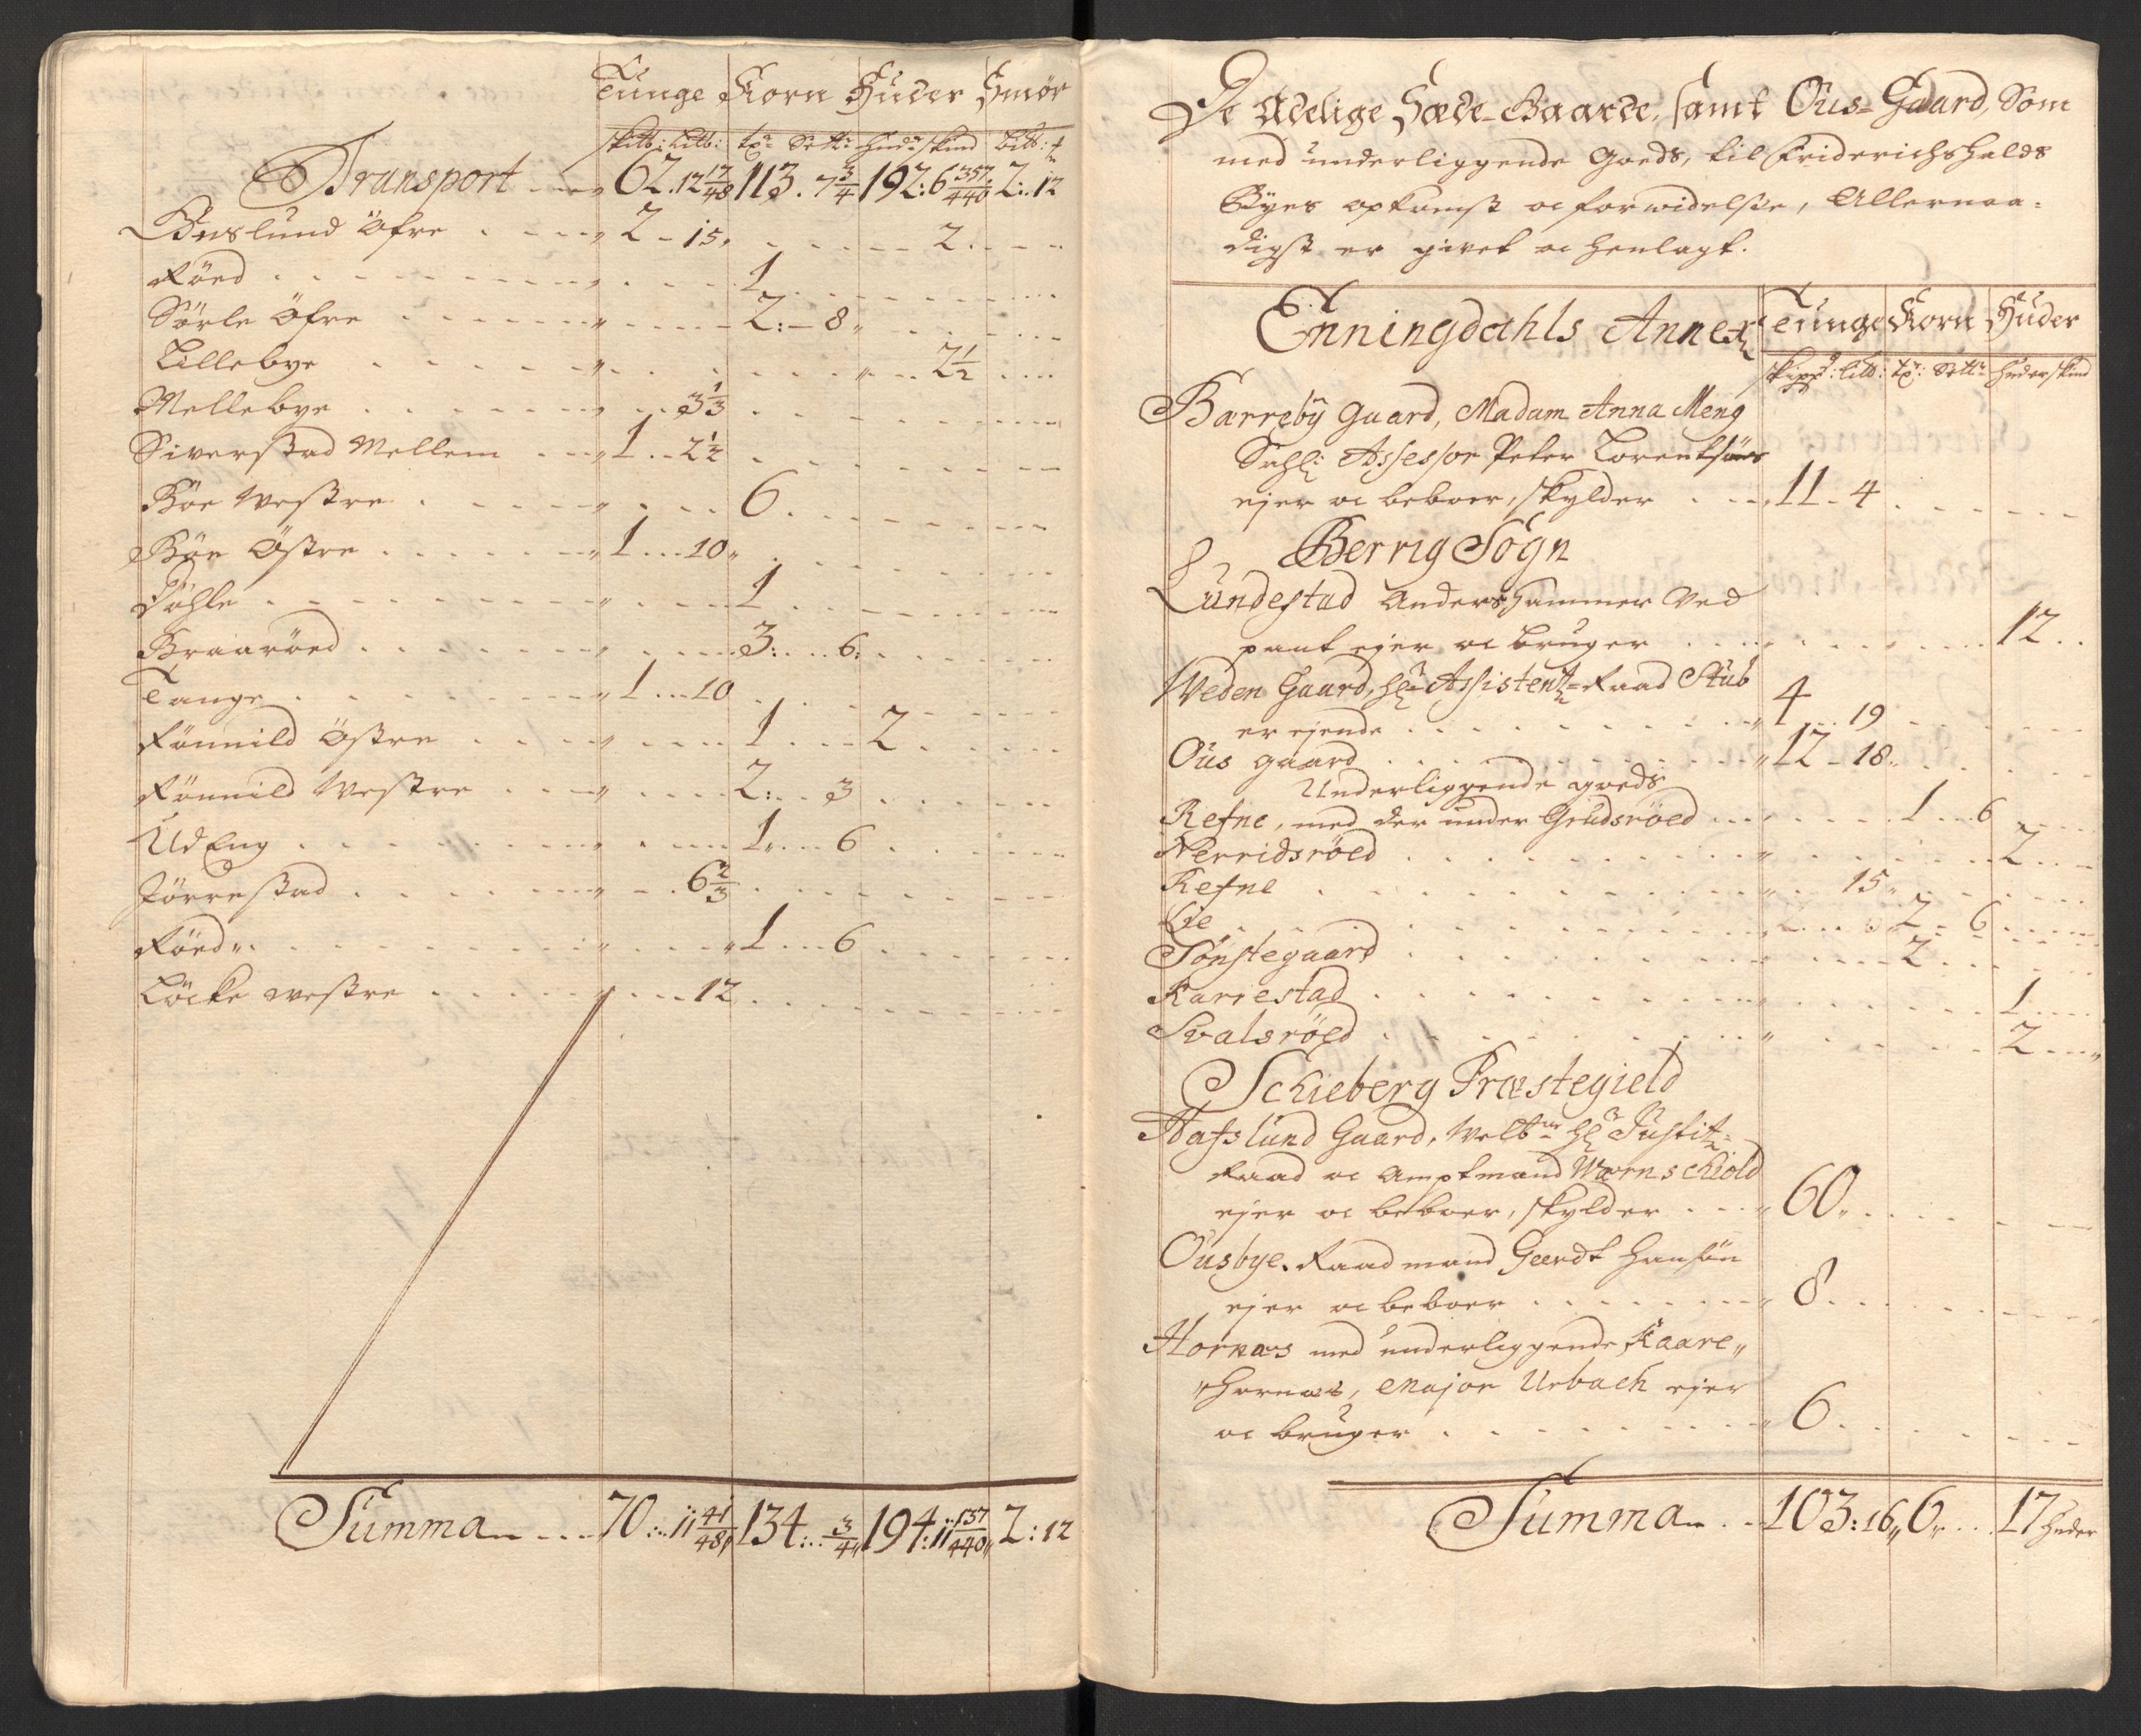 Tunge Korn Huder Smör
Sk℔: L℔: tr: Sett: hud: skind
Transport 62. 12 17/48 113. 7 3/4 192: 6 357/440 2: 12
Buslund Öfre 2 - 15 2
Röed 1
Sörle Öfre 2: 8
Lillebye 2 1/2
Mellebye 3 1/3
Siverstad Mellem 1 2 1/2
Böe Westre 6
Böe Östre 1 10
Dahle 1
Braaröed 3: 6
Tange 1 10
Rönnild Östre 1 2
Rönnild Westre 2: 3
UdEng 1 6
Jörrestad 6 2/3
Röed 1 6
Löcke westre 12
Summa 70: 11 41/48 134: 3/4 194: 11 137/440 2: 12
De Adelige Sæde-Gaarde, samt Ous-Gaard, Som
med underliggende Goeds, til Friderichshalds
Byes opkomst oc forwidelse, Allernaa-
digst er givet oc henlagt.
Enningdahls Annex Tunge Korn Huder
Skipp: L℔: tr: Sett: Huder skind
Barreby Gaard, Madam Anna Meng
Sahl: Assessor Peter Lorentsöns
ejer oc beboer, skylder 11 - 4
Berrig Sogn
Lundestad Anders Hammer Ved
pant ejer oc bruger 12
Weden Gaard, Hr Assistentz-Raad Stub
er ejende 4 19
Ous gaard 12 - 18
Underliggende goeds
Refne, med der under Grudsröed 1 6
Nerridsröed 2
Refne 15
Lie 2 - 6
Sönstegaard 2
Karrestad 1
Svalsröed 2
Schieberg Præstegield
Hafslund Gaard, Welbr Hr Justitz-
Raad oc Amptmand Wærnschiold
ejer oc beboer, skylder 60
Ousbye. Raadmand Geerdt Hansön
ejer oc beboer 8
Hornæs med underliggende Kaare
Hornæs, Major Urbach ejer
oc bruger 6
Summa 103: 16 6 17 huder